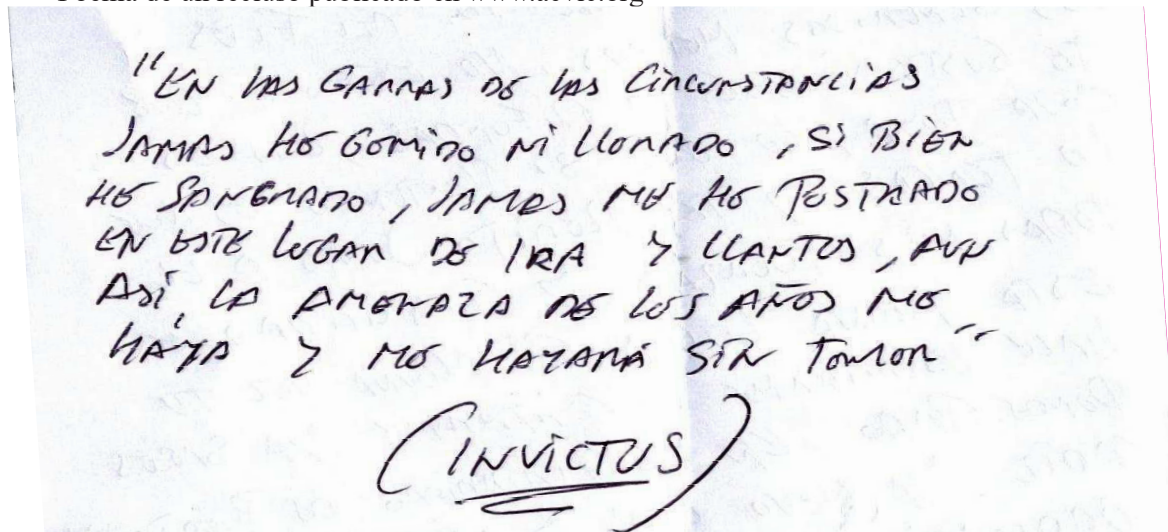 Poema de un recluso publicado en www.acvic.org
"EN LAS GARRAS DE LAS CIRCUNSTANCIAS
JAMAS HE GEMIDO NI LLORADO, SI BIEN
HE SANGRADO, JAMAS ME HE POSTRADO
EN ESTE LUGAR DE IRA Y LLANTOS, AUN
ASÍ, LA AMENAZA DE LOS AÑOS ME
HAYA Y ME HAYARÁ SIN TEMOR"
(INVICTUS)